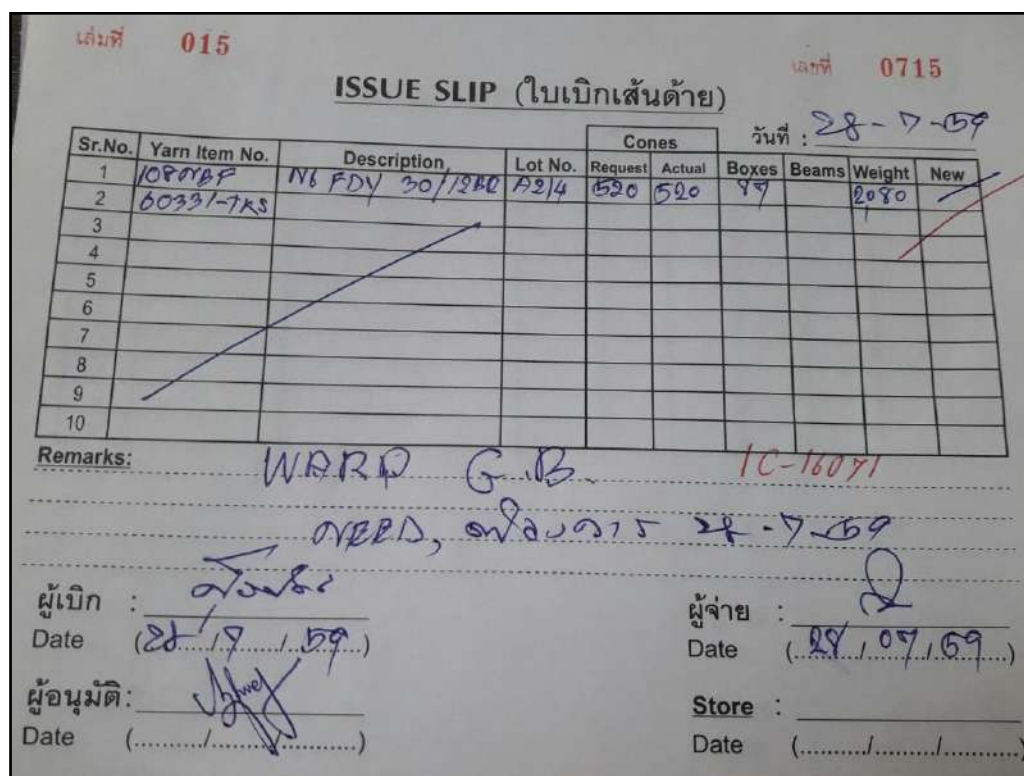 เล่มที่ 015
เลขที่ 0715
ISSUE SLIP (ใบเบิกเส้นด้าย)
วันที่ : 28-7-59
Sr.No. Yarn Item No. Description Lot No. Cones Request Actual Boxes Beams Weight New
1 N6 FDY 30/12 520 520 2,080
2 60331-TKS
3
4
5
6
7
8
9
10
Remarks: WARP G.B. IC-16071
NEED, ต้องการ 28-7-59
ผู้เบิก :
ผู้จ่าย :
Date (28/7/59)
Date (28/07/59)
ผู้อนุมัติ:
Store :
Date (........../........../..........)
Date (........../........../..........)